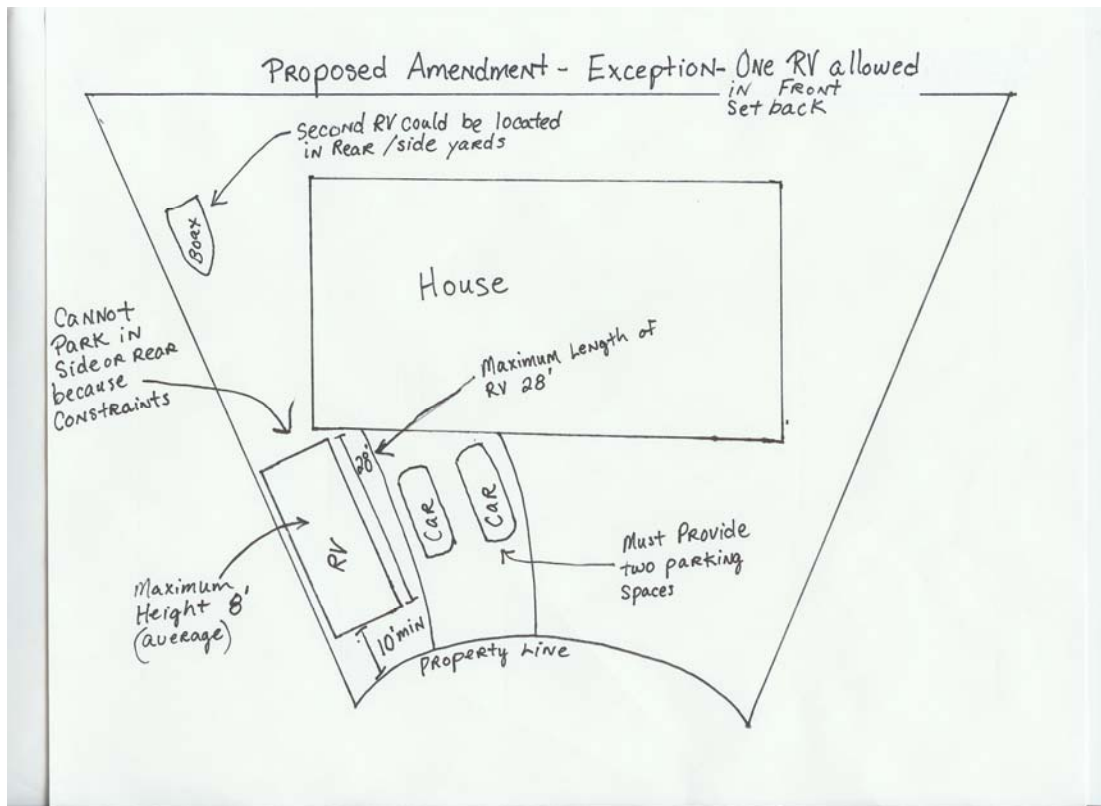 Proposed Amendment - Exception - One RV allowed
in Front
Setback
Second RV could be located
in Rear/side yards
Boat
House
Cannot
Park in
Side or Rear
because
Constraints
Maximum Length of
RV 28'
28'
Car
Car
RV
Must Provide
two parking
Spaces
Maximum
Height 8'
(average)
10' min
Property Line